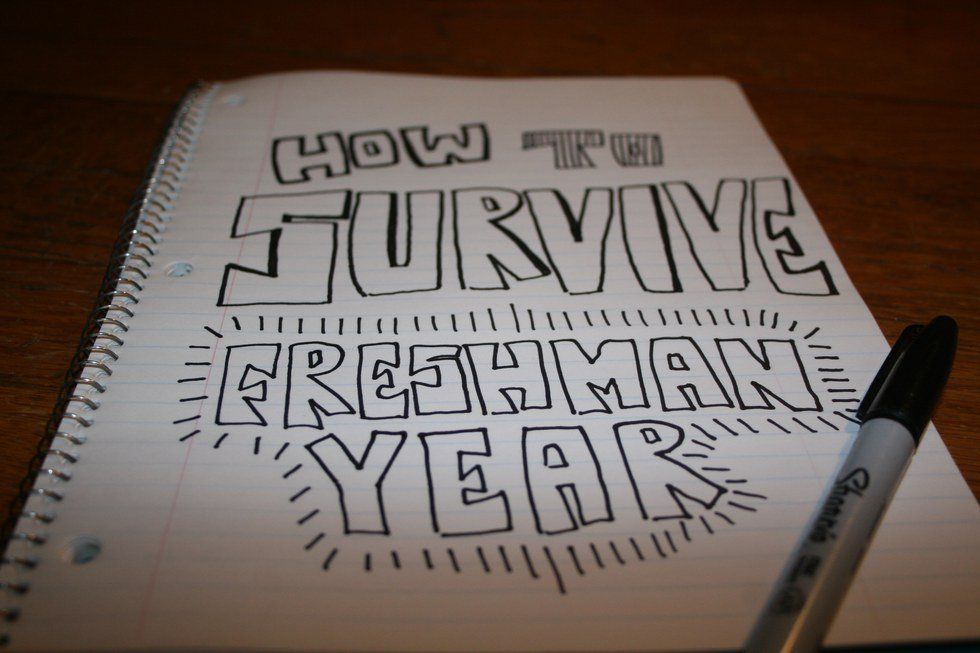 HOW TO
SURVIVE
FRESHMAN
YEAR
Sharpie